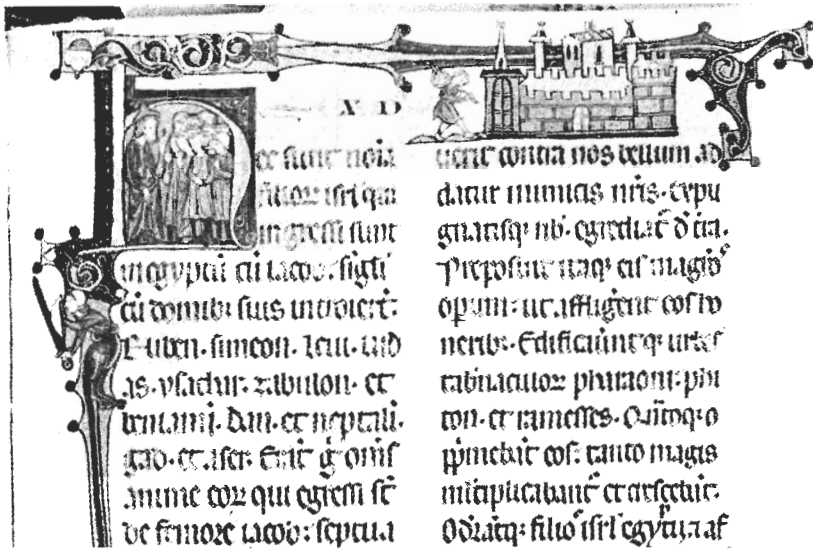 X O D
Hec sunt noīa
filiorꝝ isrl qui
ingressi sunt
in egyptū cū iacob: sīgłi
cū domibꝫ suis introierūt:
Ruben. simeon. leui. iud
as. ysachar. zabulon. et
beniamī. dan. et neptali.
gad. et aser. Erāt ḡ oms
anime eoꝝ qui egressi st̄
de femore iacob: septua
uerit contra nos bellum ad
datur inimicis nr̄is. expu
gnatisqꝫ nb̄. egrediat̄ d̄ t̄ra.
Preposuit itaqꝫ eis magr̄os
opum: ut affligēnt eos o
neribꝫ. Edificauer̄tqꝫ urbes
tabnaculoꝝ pharaoni: phi
ton. et ramesses. Qn̄toqꝫ o
p̄mebāt eos: tanto magis
mltiplicabant̄ et crescebāt.
Odrātqꝫ filios isrl egyptii. ⁊ af